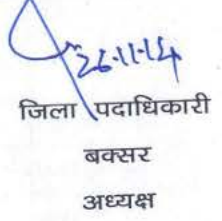 26-11-14
जिला पदाधिकारी
बक्सर
अध्यक्ष